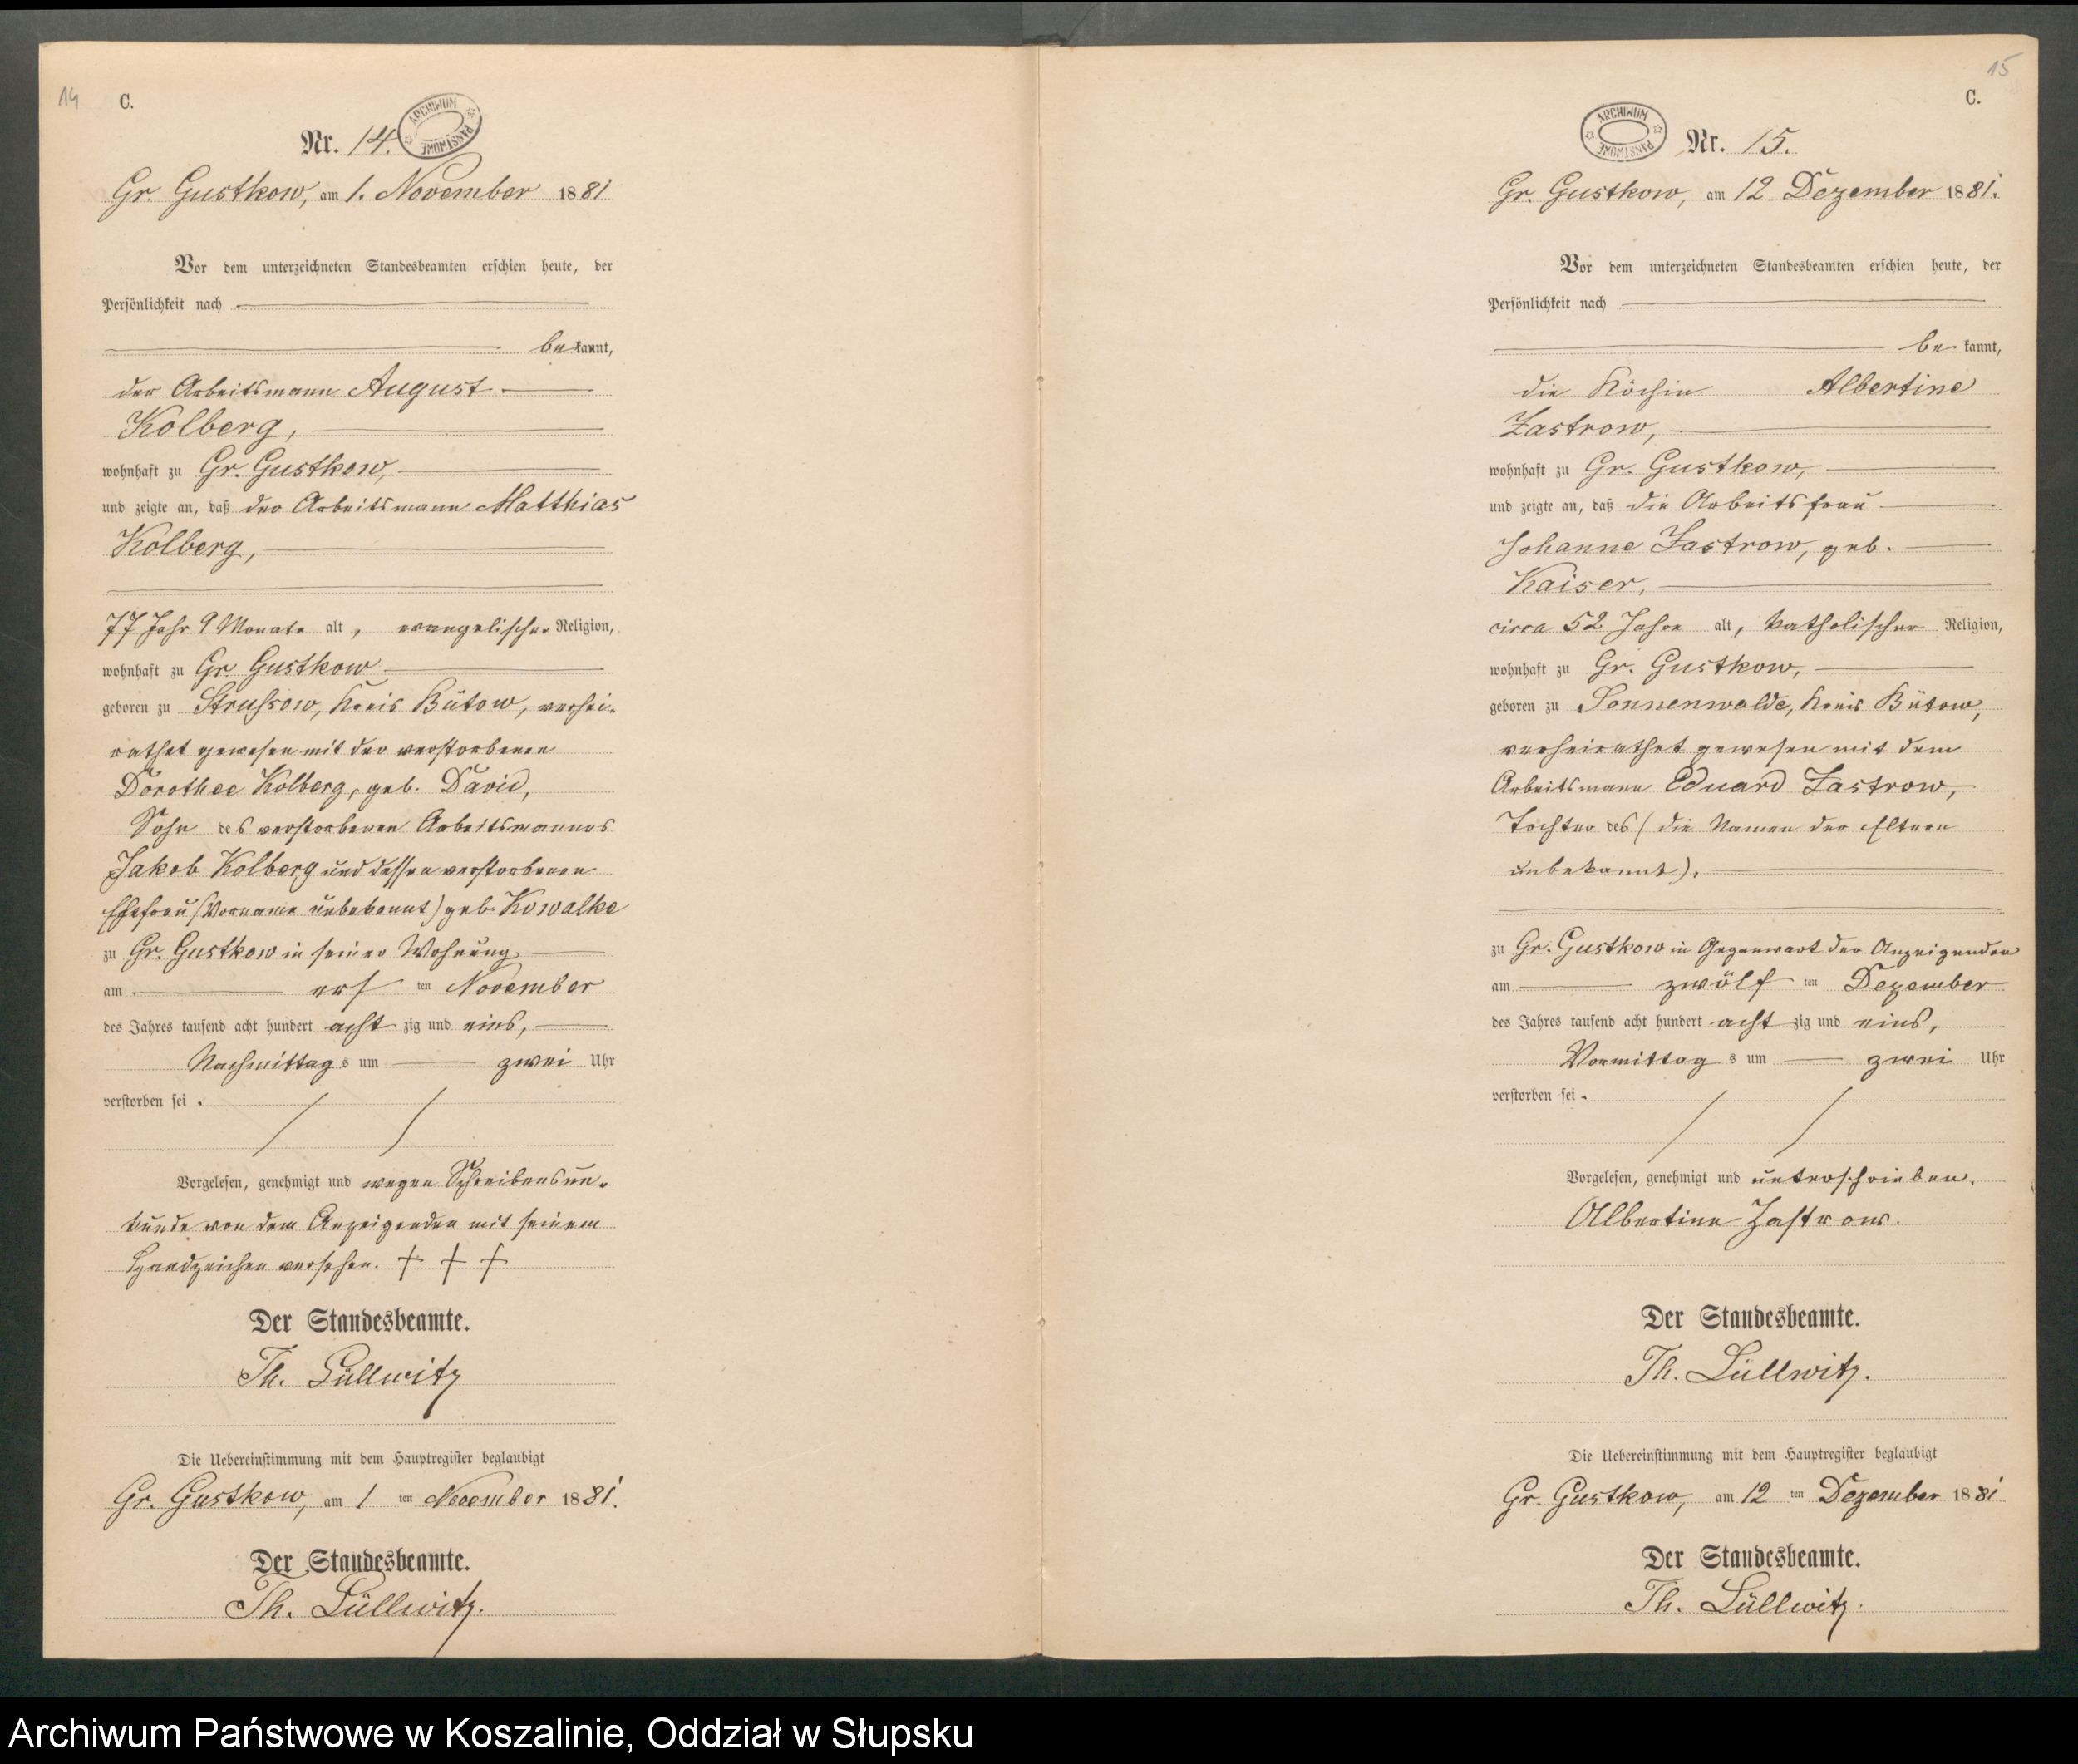 14
C.
ARCHIWUM PAŃSTWOWE
Nr. 14.
Gr. Gustkow, am 1. November 1881
Vor dem unterzeichneten Standesbeamten erschien heute, der
Persönlichkeit nach
bekannt,
der Arbeitsmann August
Kolberg,
wohnhaft zu Gr. Gustkow,
und zeigte an, daß der Arbeitsmann Matthias
Kolberg,
77 Jahr 9 Monate alt, evangelischer Religion,
wohnhaft zu Gr. Gustkow
geboren zu Strussow, Kreis Bütow, verhei-
rathet gewesen mit der verstorbenen
Dorothee Kolberg, geb. David,
Sohn des verstorbenen Arbeitsmannes
Jakob Kolberg und dessen verstorbenen
Ehefrau (Vorname unbekannt) geb. Kowalke
zu Gr. Gustkow in seiner Wohnung
am ersten November
des Jahres tausend acht hundert achtzig und eins,
Nachmittags um zwei Uhr
verstorben sei.
Vorgelesen, genehmigt und wegen Schreibensun-
kunde von dem Anzeigenden mit seinem
Handzeichen versehen. + + +
Der Standesbeamte.
Th. Lüllwitz
Die Uebereinstimmung mit dem Hauptregister beglaubigt
Gr. Gustkow, am 1ten November 1881.
Der Standesbeamte.
Th. Lüllwitz.
15
C.
ARCHIWUM PAŃSTWOWE
Nr. 15.
Gr. Gustkow, am 12 Dezember 1881.
Vor dem unterzeichneten Standesbeamten erschien heute, der
Persönlichkeit nach
bekannt,
die Köchin Albertine
Zastrow,
wohnhaft zu Gr. Gustkow,
und zeigte an, daß die Arbeitsfrau
Johanne Zastrow, geb.
Kaiser,
circa 52 Jahre alt, katholischer Religion,
wohnhaft zu Gr. Gustkow,
geboren zu Sonnenwalde, Kreis Bütow,
verheirathet gewesen mit dem
Arbeitsmann Eduard Zastrow,
Tochter des (die Namen der Eltern
unbekannt),
zu Gr. Gustkow in Gegenwart der Anzeigenden
am zwölften Dezember
des Jahres tausend acht hundert achtzig und eins,
Vormittags um zwei Uhr
verstorben sei.
Vorgelesen, genehmigt und unterschrieben.
Albertine Zastrow.
Der Standesbeamte.
Th. Lüllwitz.
Die Uebereinstimmung mit dem Hauptregister beglaubigt
Gr. Gustkow, am 12ten Dezember 1881
Der Standesbeamte.
Th. Lüllwitz.
Archiwum Państwowe w Koszalinie, Oddział w Słupsku